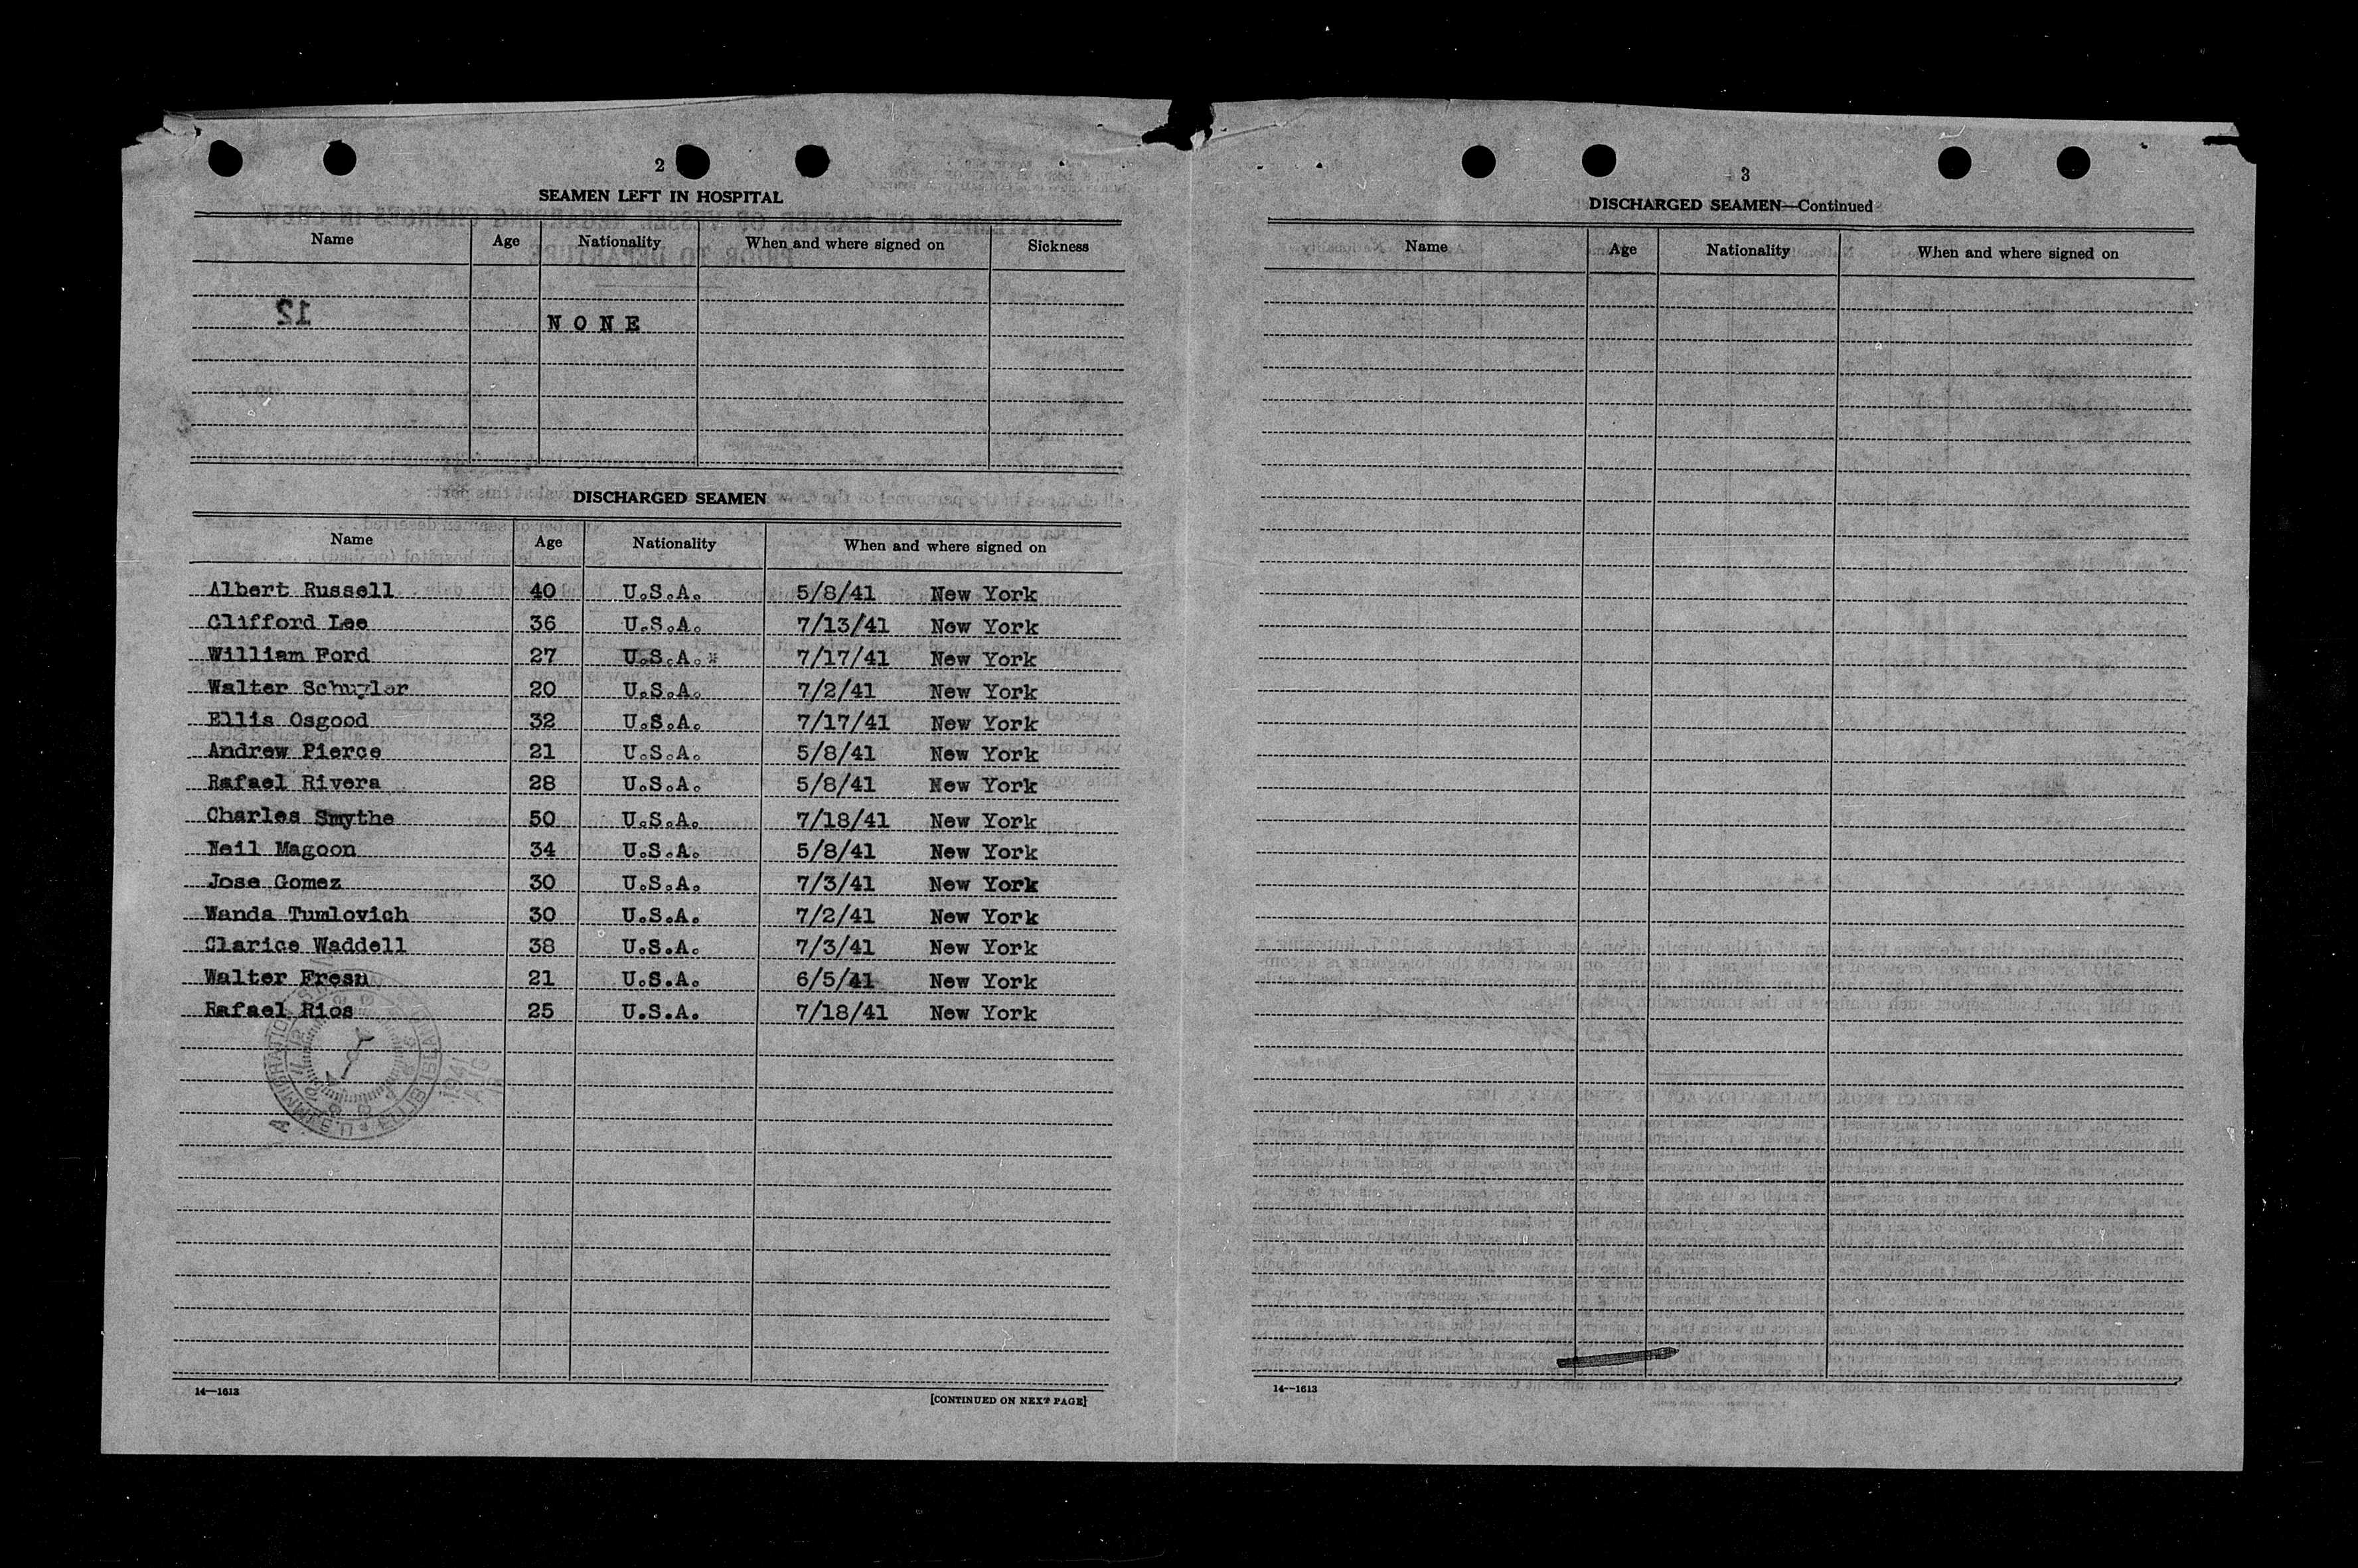 2
SEAMEN LEFT IN HOSPITAL
Name Age Nationality When and where signed on Sickness
12
NONE
DISCHARGED SEAMEN
Name Age Nationality When and where signed on
Albert Russell 40 U.S.A. 5/8/41 New York
Clifford Lee 36 U.S.A. 7/13/41 New York
William Ford 27 U.S.A. 7/17/41 New York
Walter Schuyler 20 U.S.A. 7/2/41 New York
Ellis Osgood 32 U.S.A. 7/17/41 New York
Andrew Pierce 21 U.S.A. 5/8/41 New York
Rafael Rivera 28 U.S.A. 5/8/41 New York
Charles Smythe 50 U.S.A. 7/18/41 New York
Neil Magoon 34 U.S.A. 5/8/41 New York
Jose Gomez 30 U.S.A. 7/3/41 New York
Wanda Tumlovich 30 U.S.A. 7/2/41 New York
Clarice Waddell 38 U.S.A. 7/3/41 New York
Walter 21 U.S.A. 6/5/41 New York
Rafael Rios 25 U.S.A. 7/18/41 New York
14—1613
[CONTINUED ON NEXT PAGE]
3
DISCHARGED SEAMEN—Continued
Name Age Nationality When and where signed on
14—1613